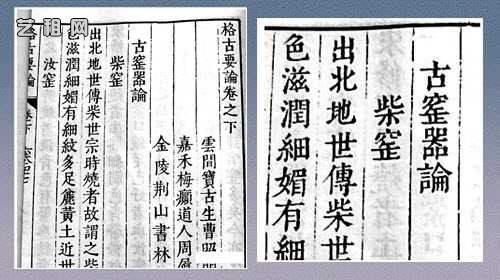 艺租网
格古要論卷之下
雲間寶古生曹
嘉禾梅癲道人周履
金陵荆山書林
古窰器論
柴窰
出北地世傳柴世宗時燒者故謂之柴
色滋潤細媚有細紋多足麄黃土近世
汝窰
格古要論 卷下
古窰器論
柴窰
出北地世傳柴世
色滋潤細媚有細